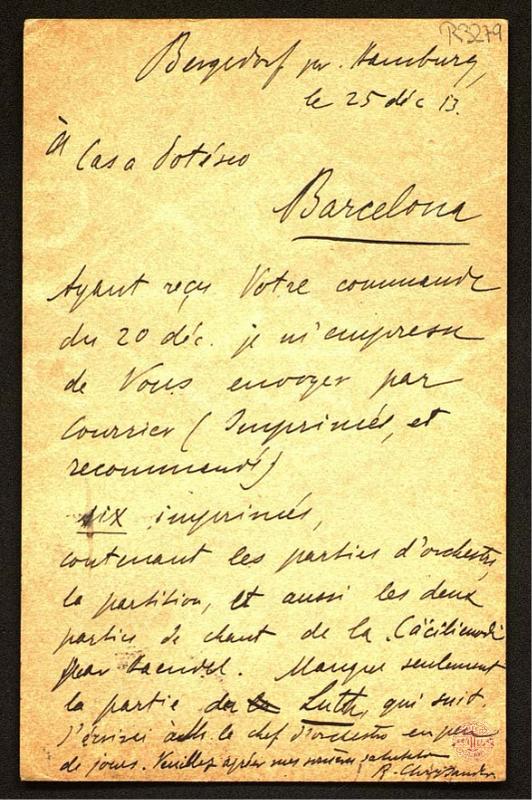 R3279
Bergedorf per. Hamburg,
le 25 déc 13.
à Casa Dotésio
Barcelona
Ayant reçu Votre commande
du 20 déc. je m'empresse
de Vous envoyer par
Courrier (Imprimés, et
recommandés)
six imprimés,
contenant les parties d'orchestre,
la partition, et aussi les deux
parties de chant de la Cäcilienode
par Haendel. Manque seulement
la partie de la Luth, qui suit.
J'écrirai à M. le chef d'orchestre en peu
de jours. Veuillez agréer mes salutations
R. Chrysander